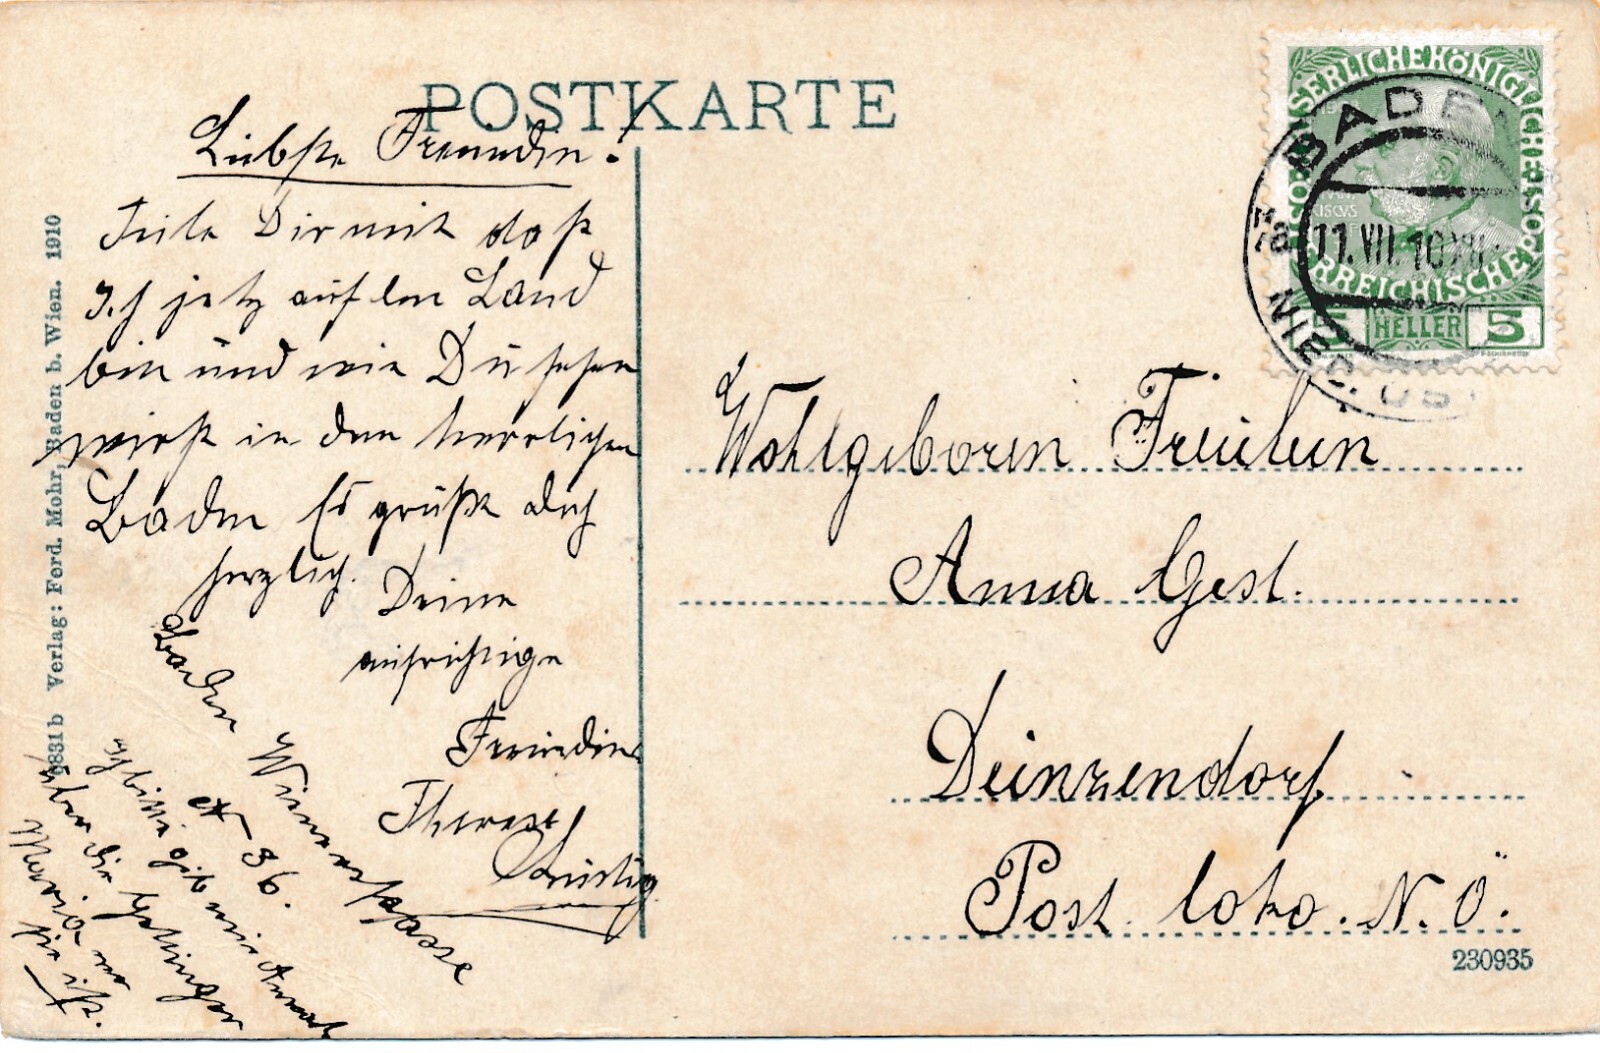 POSTKARTE
Liebste Freundin!
Teile Dir mit daß
ich jetz auf den Land
bin und wie Du sehen
wirst in den herrlichen
Baden Es grüßt dich
herzlich.
Deine
aufrichtige
Freundin
Therese
Lustig
Baden Wienerstrasse
No 36.
ich bitte gib mir Antwort
über die Gehringer
Maria wo
sie ist.
6831b Verlag: Ferd. Mohr, Baden b. Wien. 1910
KAISERLICHE KÖNIGLICHE ÖSTERREICHISCHE POST
5 HELLER 5
BADEN
11.VII.10
NIED. ÖST
Wohlgeboren Freulein
Anna Gest.
Deinzendorf
Post loko. N.Ö.
230935